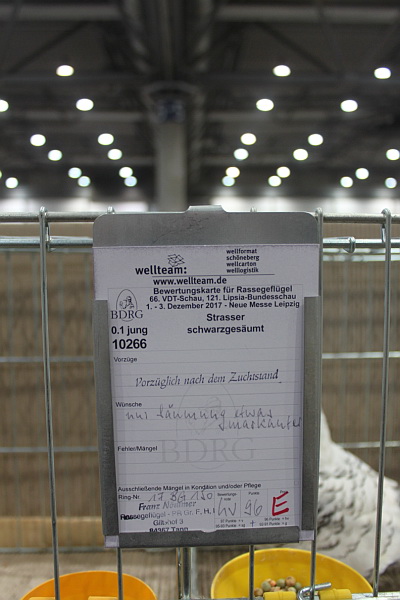 wellteam:
wellformat
schöneberg
wellcarton
welllogistik
www.wellteam.de
Bewertungskarte für Rassegeflügel
66. VDT-Schau, 121. Lipsia-Bundesschau
1. - 3. Dezember 2017 - Neue Messe Leipzig
BDRG
Strasser
0.1 jung
schwarzgesäumt
10266
Vorzüge
Vorzüglich nach dem Zuchtstand
Wünsche
nur Säumung etwas
markanter
Fehler/Mängel
BDRG
Ausschließende Mängel in Kondition und/oder Pflege
Ring-Nr.
Punkte
hv 96 E
Franz Nöhmer